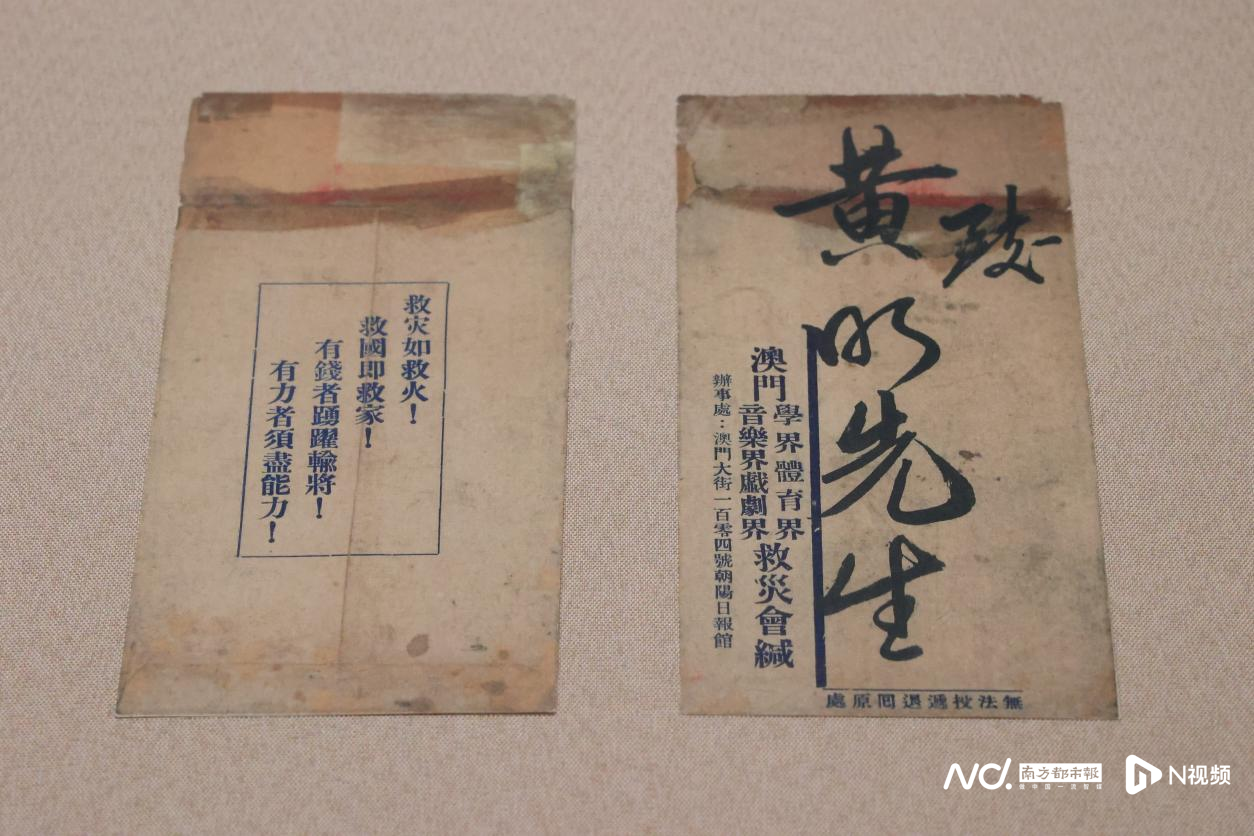 救灾如救火！
救國即救家！
有錢者踴躍輸將！
有力者須盡能力！
致
黃明先生
澳門學界體育界音樂界戲劇界救災會緘
辦事處：澳門大街一百零四號朝陽日報館
無法投遞退囘原處
南方都市報
N视频